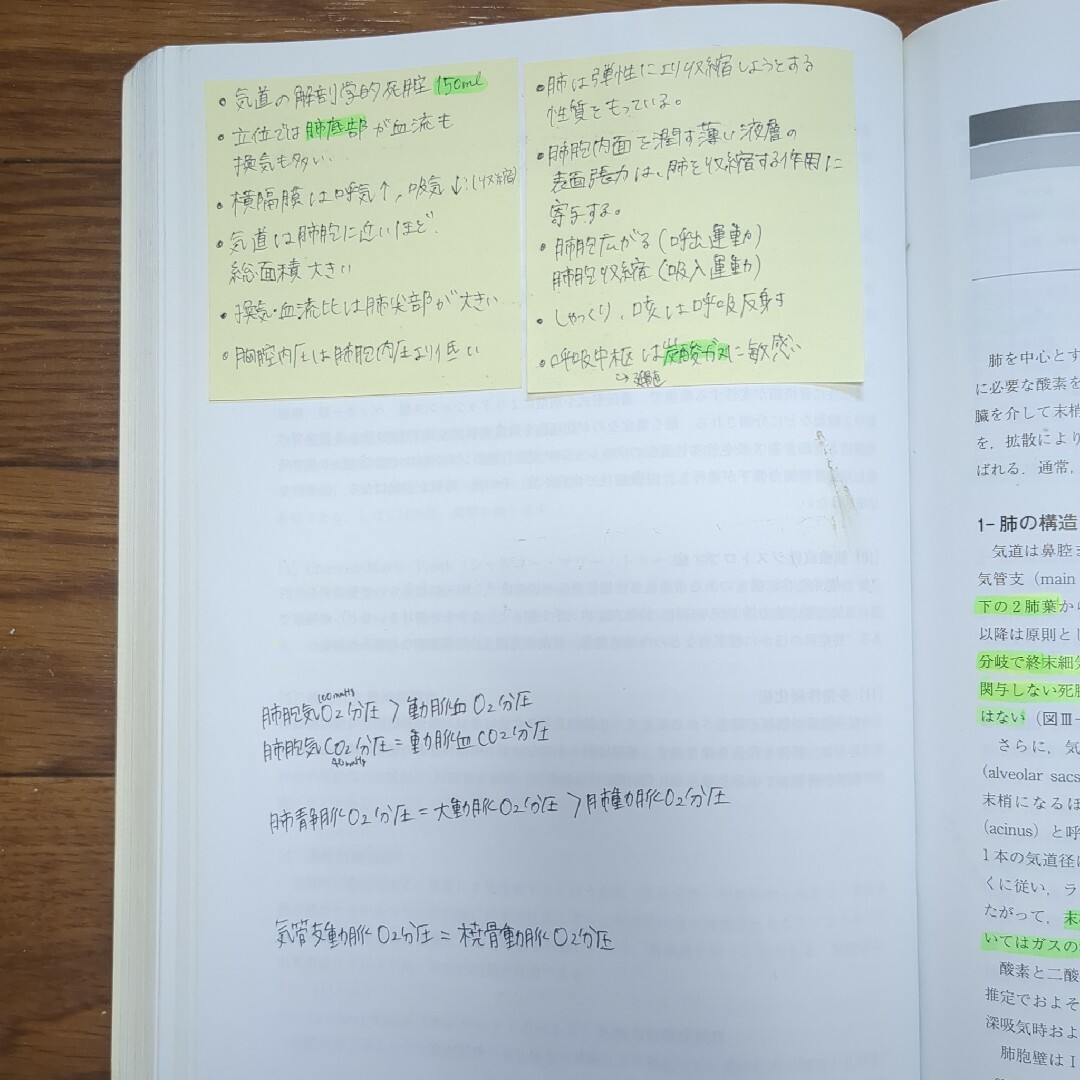 • 気道の解剖学的死腔 150ml
• 立位では肺底部が血流も
換気も多い.
• 横隔膜は呼気↑, 吸気↓(収縮)
• 気道は肺胞に近いほど.
総面積 大きい
• 換気・血流比は肺尖部が大きい
• 胸腔内圧は肺胞内圧より低い
• 肺は弾性により収縮しようとする
性質をもっている。
• 肺胞内面を潤す薄い液層の
表面張力は、肺を収縮する作用に
寄与する。
• 肺胞広がる (呼出運動)
肺胞収縮 (吸入運動)
• しゃっくり、咳は呼吸反射
• 呼吸中枢は炭酸ガスに敏感
↳ 延髄
100mmHg
肺胞気O2分圧 > 動脈血 O2分圧
肺胞気CO2分圧 = 動脈血 CO2分圧
40mmHg
肺静脈O2分圧 = 大動脈O2分圧 > 肺動脈O2分圧
気管支動脈O2分圧 = 橈骨動脈O2分圧
肺を中心とす
に必要な酸素を
臓を介して末梢
を，拡散により
ばれる．通常，
1- 肺の構造
気道は鼻腔
気管支 (main
下の2肺葉か
以降は原則と
分岐で終末細
関与しない死
はない (図Ⅲ-
さらに，気
(alveolar sacs
末梢になるほ
(acinus) と呼
1本の気道径
くに従い，ラ
たがって，末
いてはガスの
酸素と二酸
推定でおよそ
深吸気時およ
肺胞壁はⅠ